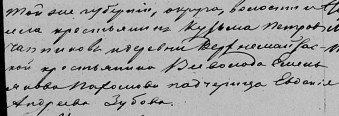 той же губернiи, округа, волости и
села крестьянин Кузьма Петров
Чапчиков и деревни Верхнемайгас-
кой крестьянина Всеволода Емель
янова падчерица Евдокiя
Андреева Зубова.